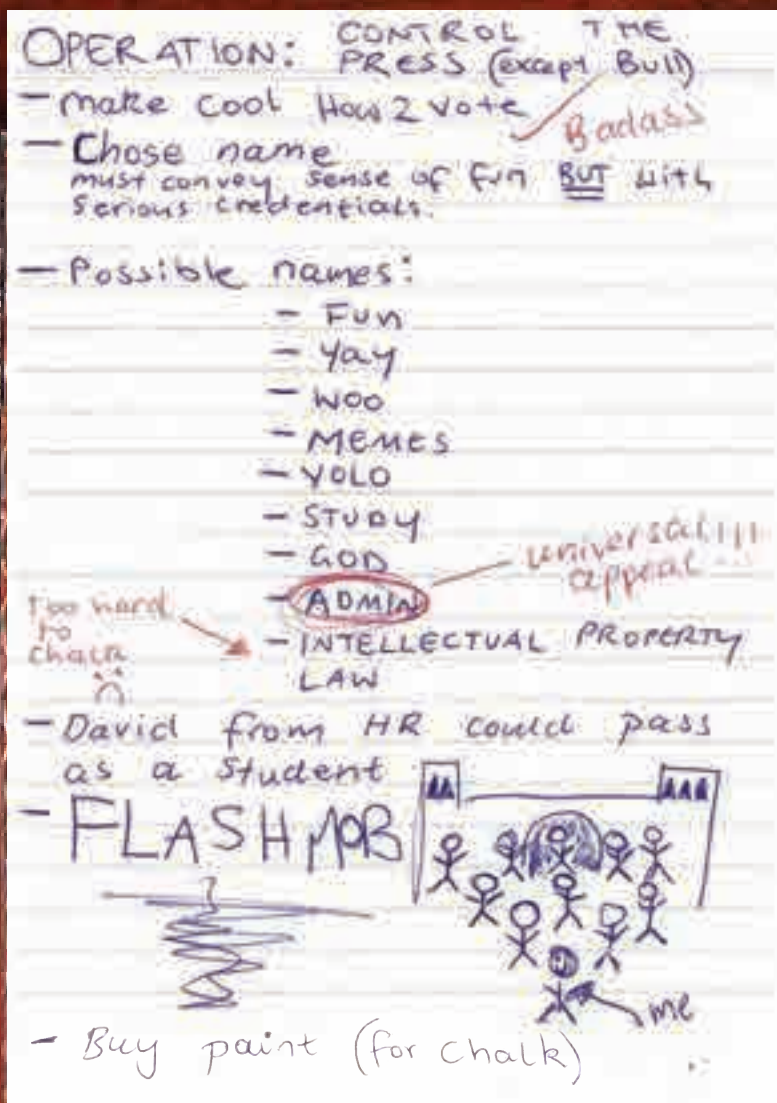 OPERATION: CONTROL THE
PRESS (except Bull)
- make cool How 2 vote
Badass
- Chose name
must convey sense of fun BUT with
serious credentials.
- Possible names:
- Fun
- Yay
- Woo
- MEMES
- YOLO
- STUDY
- GOD
universal!!!
appeal
- ADMIN
Too hard
to
chalk
- INTELLECTUAL PROPERTY
LAW
- David from HR could pass
as a student
- FLASHMOB
me
- Buy paint (for chalk)